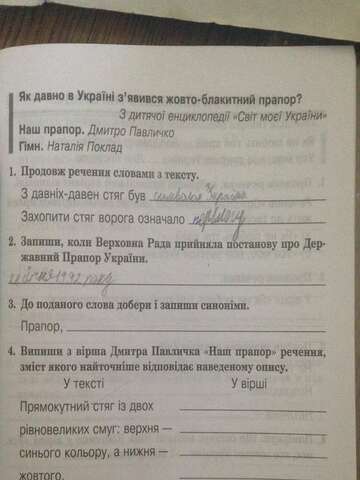 Як давно в Україні з’явився жовто-блакитний прапор?
З дитячої енциклопедії «Світ моєї України»
Наш прапор. Дмитро Павличко
Гімн. Наталія Поклад
1. Продовж речення словами з тексту.
З давніх-давен стяг був символом України
Захопити стяг ворога означало перемогу
2. Запиши, коли Верховна Рада прийняла постанову про Дер-
жавний Прапор України.
1992 року
3. До поданого слова добери і запиши синоніми.
Прапор,
4. Випиши з вірша Дмитра Павличка «Наш прапор» речення,
зміст якого найточніше відповідає наведеному опису.
У тексті У вірші
Прямокутний стяг із двох
рівновеликих смуг: верхня —
синього кольору, а нижня —
жовтого.